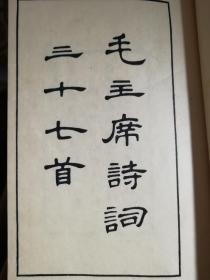 毛主席詩詞
三十七首